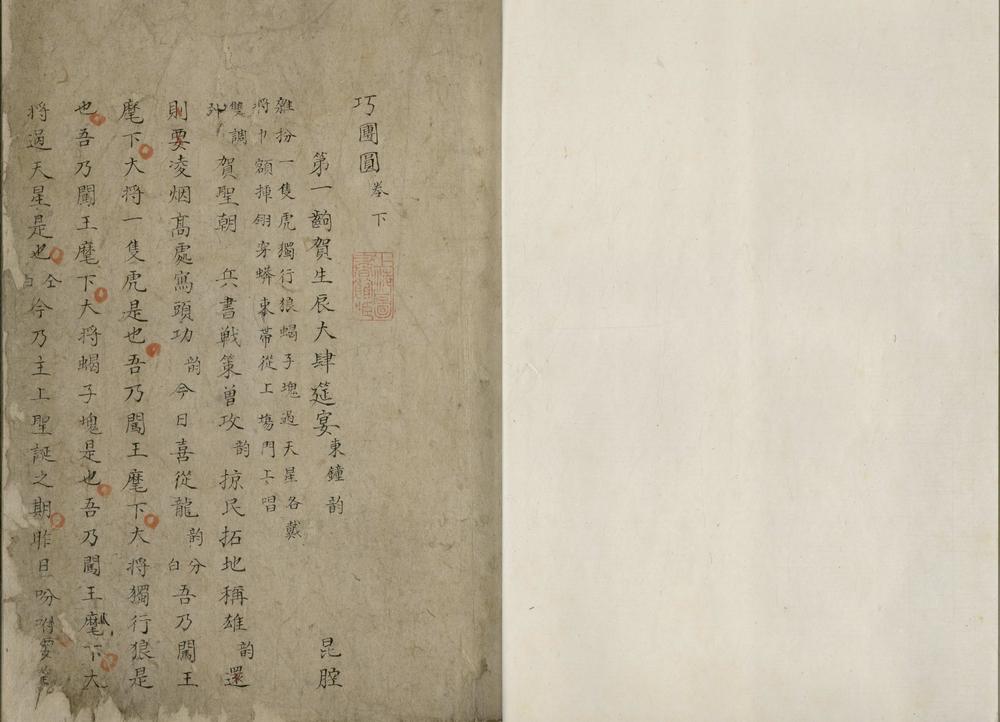 巧團圓卷下
第一齣賀生辰大肆筵宴東鐘韵 昆腔
雜扮一隻虎獨行狼蝎子塊過天星各戴
將巾額插翎穿蟒束帶從上塲門上唱
雙調 賀聖朝 兵書戰策曾攻韵掠民拓地稱雄韵還
則要凌烟髙處寫頭功韵今日喜從龍韵分白吾乃闖王
麾下大將一隻虎是也吾乃闖王麾下大將獨行狼是
也吾乃闖王麾下大將蝎子塊是也吾乃闖王麾下大
將過天星是也仝白今乃主上聖誕之期昨日吩咐要